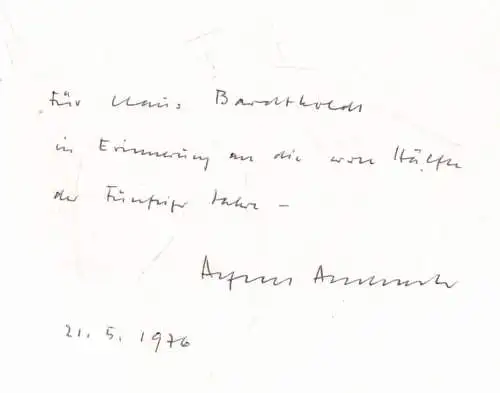 Für Klaus Bardtholdt
in Erinnerung an die erste Hälfte
der Fünfziger Jahre –
Alfred
21. 5. 1976